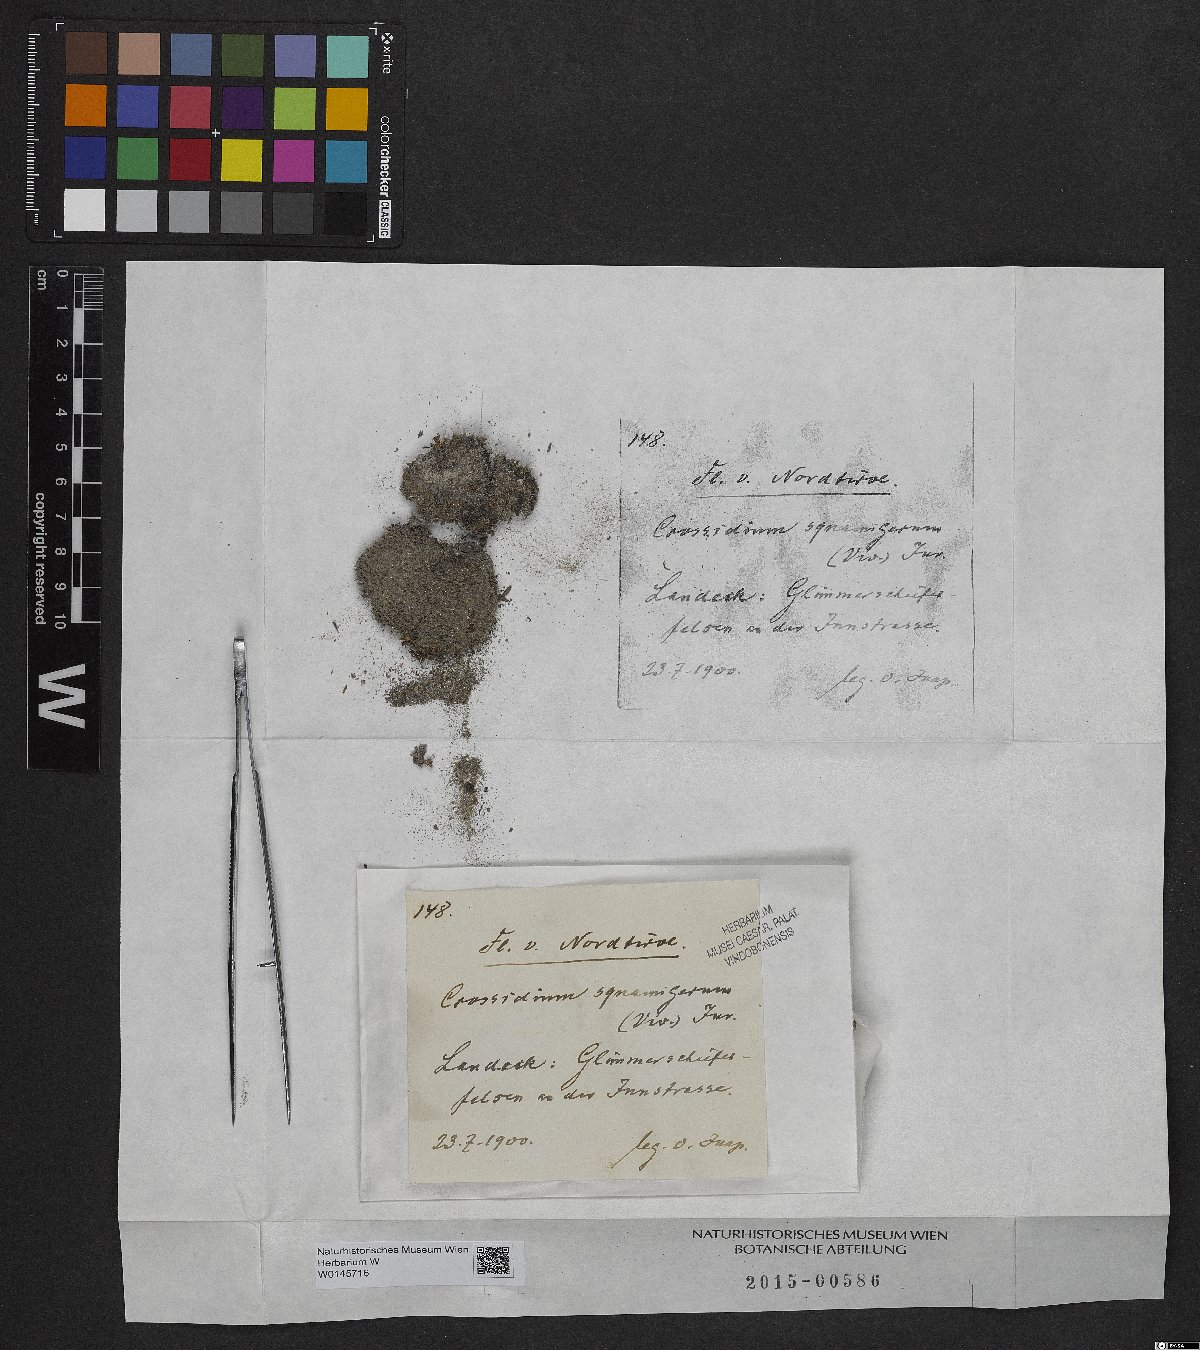 x-rite
colorchecker CLASSIC
mm
0 1 2 3 4 5 6 7 8 9 10
cm
copyright reserved
W
148.
Fl. v. Nordtirol.
Crossidium squamigerum
(Viv.) Jur.
Landeck: Glimmerschiefer-
felsen an der Innstrasse.
23.7.1900. leg.
148.
Fl. v. Nordtirol.
Crossidium squamigerum
(Viv.) Jur.
Landeck: Glimmerschiefer-
felsen an der Innstrasse.
23.7.1900. leg.
HERBARIUM
MUSEI CAESAR. PALAT.
VINDOBONENSIS
Naturhistorisches Museum Wien
Herbarium W
W0145716
NATURHISTORISCHES MUSEUM WIEN
BOTANISCHE ABTEILUNG
2015-00586
BY-SA